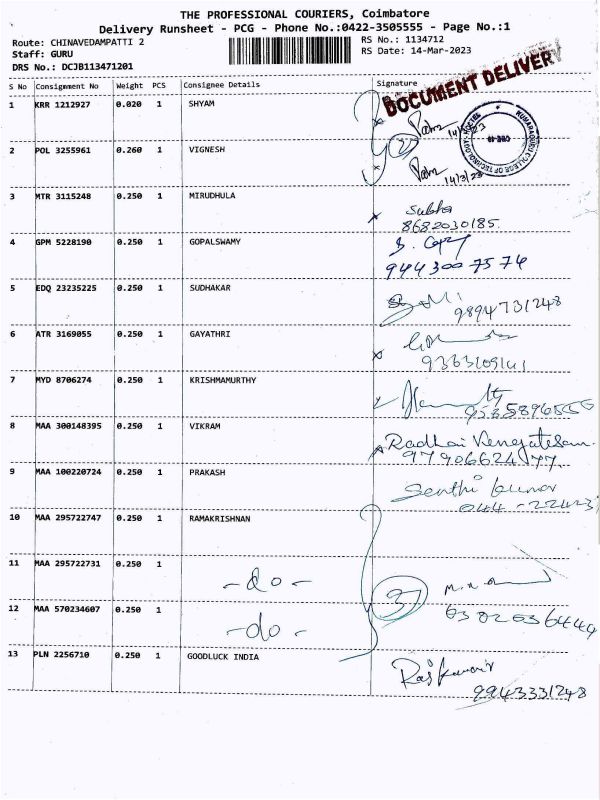 THE PROFESSIONAL COURIERS, Coimbatore
Delivery Runsheet - PCG - Phone No.:0422-3505555 - Page No.:1
Route: CHINAVEDAMPATTI 2
RS No.: 1134712
Staff: GURU
RS Date: 14-Mar-2023
DRS No.: DCJB113471201
S No Consignment No Weight PCS Consignee Details Signature
DOCUMENT DELIVERY
1 KRR 1212927 0.020 1 SHYAM
14/3/23
KUMARAGURU COLLEGE OF TECHNOLOGY
2 POL 3255961 0.260 1 VIGNESH
2
14/3/23
3 MTR 3115248 0.250 1 MIRUDHULA
Subha
8682030185.
4 GPM 5228190 0.250 1 GOPALSWAMY
9443007574
5 EDQ 23235225 0.250 1 SUDHAKAR
9894731248
6 ATR 3169055 0.250 1 GAYATHRI
7 MYD 8706274 0.250 1 KRISHMAMURTHY
8 MAA 300148395 0.250 1 VIKRAM
Radhai Vengatesan.
9790662477
9 MAA 100220724 0.250 1 PRAKASH
Senthil Kumar
10 MAA 295722747 0.250 1 RAMAKRISHNAN
11 MAA 295722731 0.250 1
- do -
3
12 MAA 570234607 0.250 1
- do -
6382636449
13 PLN 2256710 0.250 1 GOODLUCK INDIA
Rajkumar
9943331248